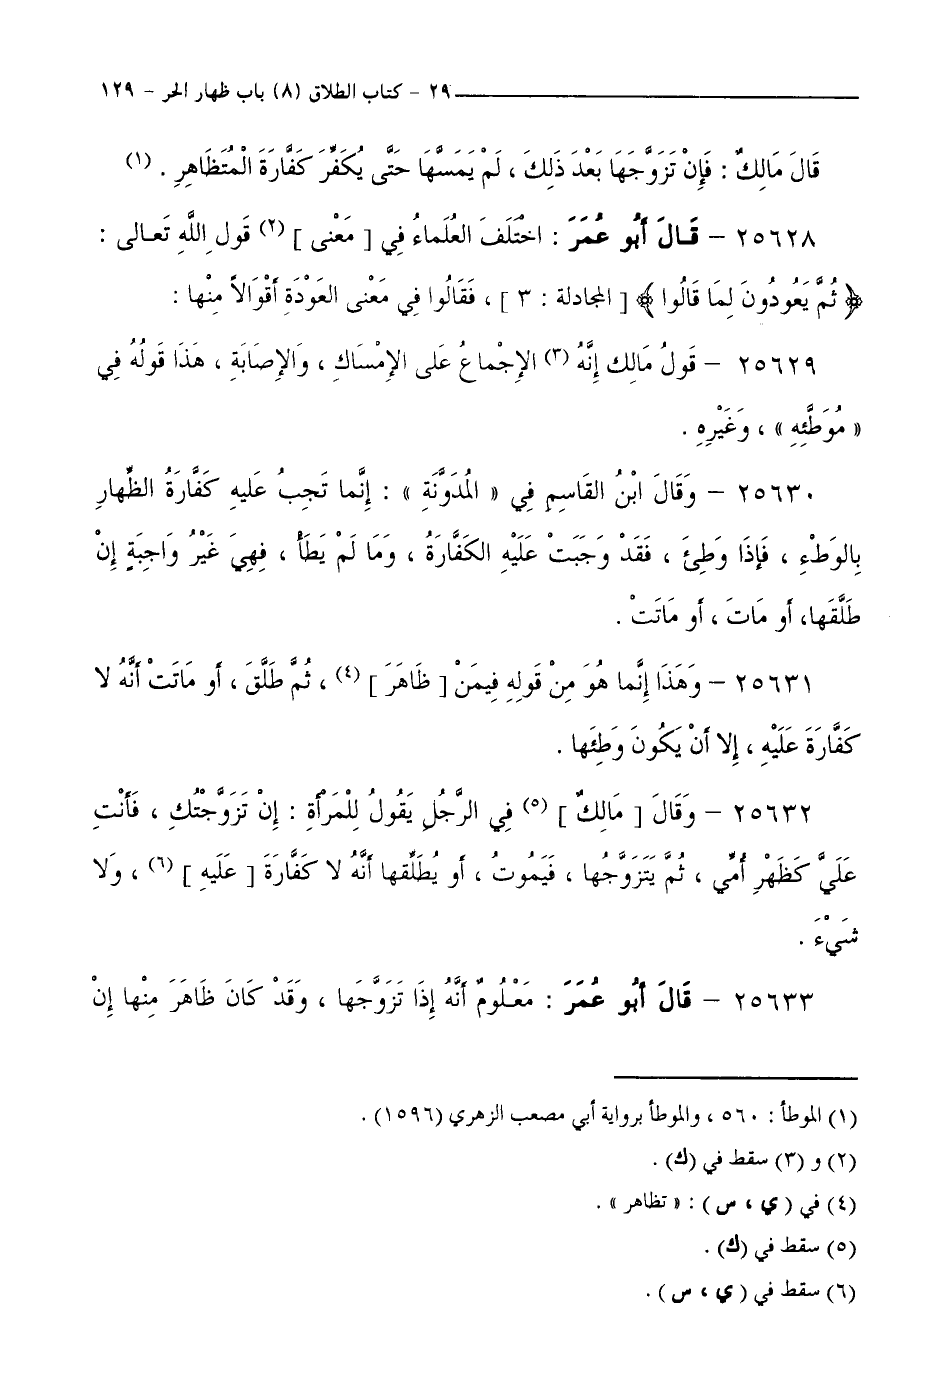 ٢٩ - كتاب الطلاق (٨) باب ظهار الحر - ١٢٩
قَالَ مَالِكٌ : فَإِنْ تَزَوَّجَهَا بَعْدَ ذَلِكَ ، لَمْ يَمَسَّهَا حَتَّى يُكَفِّرَ كَفَّارَةَ الْمُتَظَاهِرِ . (١)
٢٥٦٢٨ - قَالَ أَبُو عُمَرَ : اخْتَلَفَ العُلَماءُ فِي [ مَعْنى ] (٢) قَولِ اللَّهِ تَعالى :
﴿ ثُمَّ يَعُودُونَ لِمَا قَالُوا ﴾ [ المجادلة : ٣ ] ، فَقَالُوا فِي مَعْنى العَوْدَةِ أَقْوَالاً مِنْها :
٢٥٦٢٩ - قَولُ مَالِكٍ إِنَّهُ (٣) الإِجْماعُ عَلى الإِمْساكِ ، وَالإِصَابَةِ ، هَذَا قَولُهُ فِي
« مُوَطَّئِهِ » ، وَغَيْرِهِ .
٢٥٦٣٠ - وَقَالَ ابْنُ القَاسِمِ فِي « الْمُدَوَّنَةِ » : إِنَّما تَجِبُ عَليهِ كَفَّارَةُ الظِّهارِ
بِالوَطْءِ ، فَإِذَا وَطِئَ ، فَقَدْ وَجَبَتْ عَلَيْهِ الكَفَّارَةُ ، وَمَا لَمْ يَطَأْ ، فَهِيَ غَيْرُ وَاجِبَةٍ إِنْ
طَلَّقَها، أَو مَاتَ ، أَو مَاتَتْ .
٢٥٦٣١ - وَهَذَا إِنَّما هُوَ مِنْ قَولِهِ فِيمَنْ [ ظَاهَرَ ] (٤) ، ثُمَّ طَلَّقَ ، أَو مَاتَتْ أَنَّهُ لا
كَفَّارَةَ عَلَيْهِ ، إِلا أَنْ يَكُونَ وَطِئَها .
٢٥٦٣٢ - وَقَالَ [ مَالِكٌ ] (٥) فِي الرَّجُلِ يَقُولُ لِلْمَرْأَةِ : إِنْ تَزَوَّجْتُكِ ، فَأَنْتِ
عَلَيَّ كَظَهْرِ أُمِّي ، ثُمَّ يَتَزَوَّجُها ، فَيَمُوتُ ، أَو يُطَلِّقها أَنَّهُ لا كَفَّارَةَ [ عَلَيهِ ] (٦) ، وَلا
شَيْءَ .
٢٥٦٣٣ - قَالَ أَبُو عُمَرَ : مَعْلُومٌ أَنَّهُ إِذَا تَزَوَّجَها ، وَقَدْ كَانَ ظَاهَرَ مِنْها إِنْ
(١) الموطأ : ٥٦٠ ، والموطأ برواية أبي مصعب الزهري (١٥٩٦) .
(٢) و (٣) سقط في (ك) .
(٤) في ( ي ، س ) : « تظاهر » .
(٥) سقط في (ك) .
(٦) سقط في ( ي ، س ) .